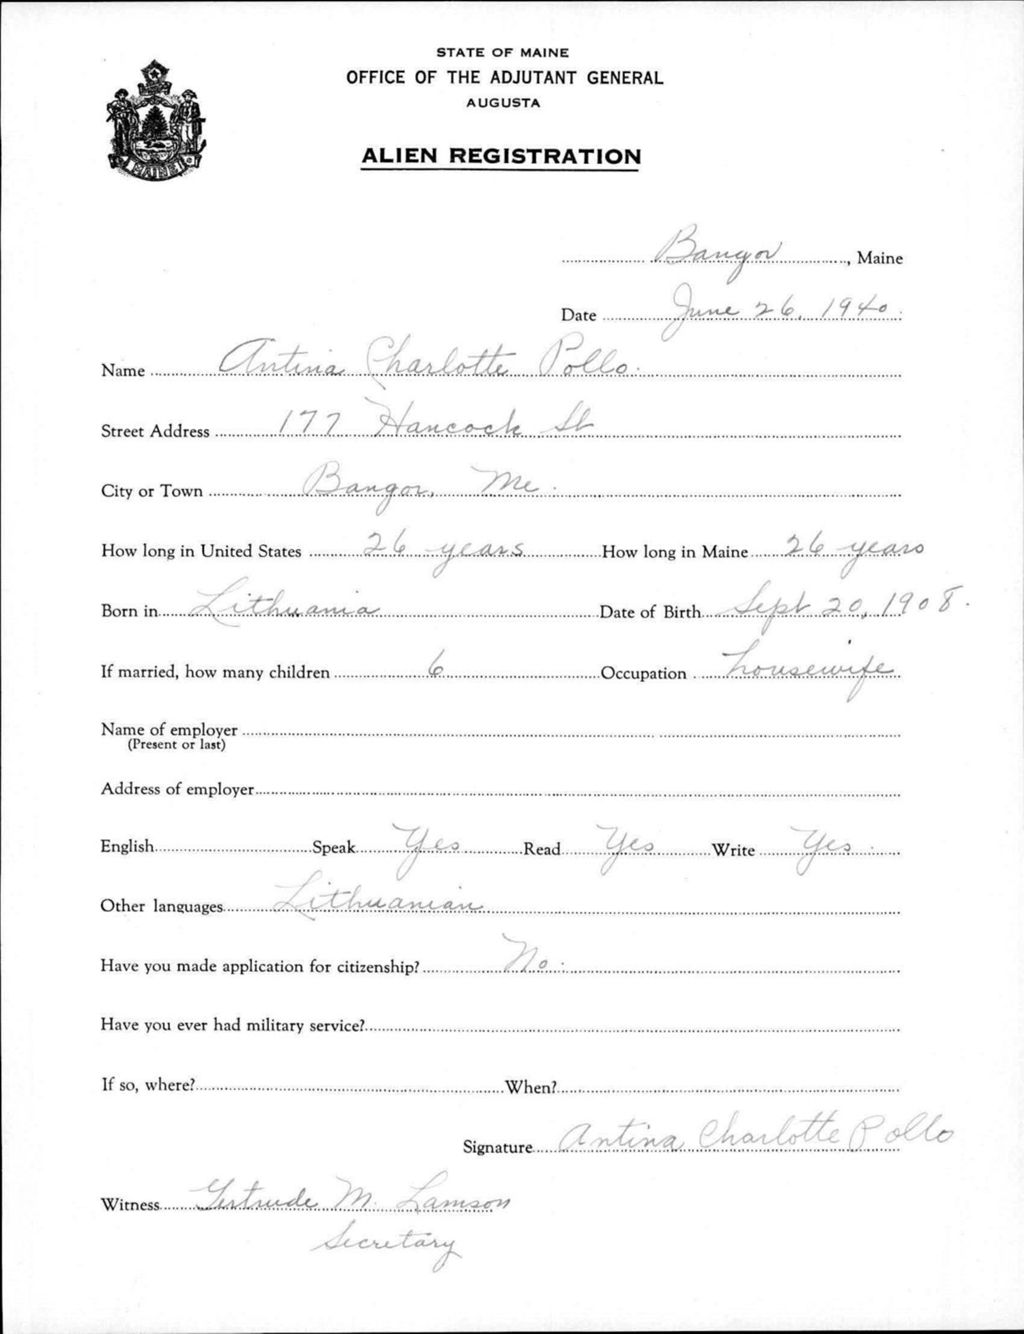 STATE OF MAINE
OFFICE OF THE ADJUTANT GENERAL
AUGUSTA
ALIEN REGISTRATION
Bangor, Maine
Date June 26, 1940.
Name Antina Charlotte Pollo.
Street Address 177 Hancock St
City or Town Bangor, Me.
How long in United States 26 years How long in Maine 26 years
Born in Lithuania Date of Birth Sept 20, 1908.
If married, how many children 6 Occupation housewife
Name of employer
(Present or last)
Address of employer
English Speak Yes Read Yes Write Yes.
Other languages Lithuanian
Have you made application for citizenship? No.
Have you ever had military service?
If so, where? When?
Signature Antina Charlotte Pollo
Witness Gertrude M. Lamson
Secretary
MAINE